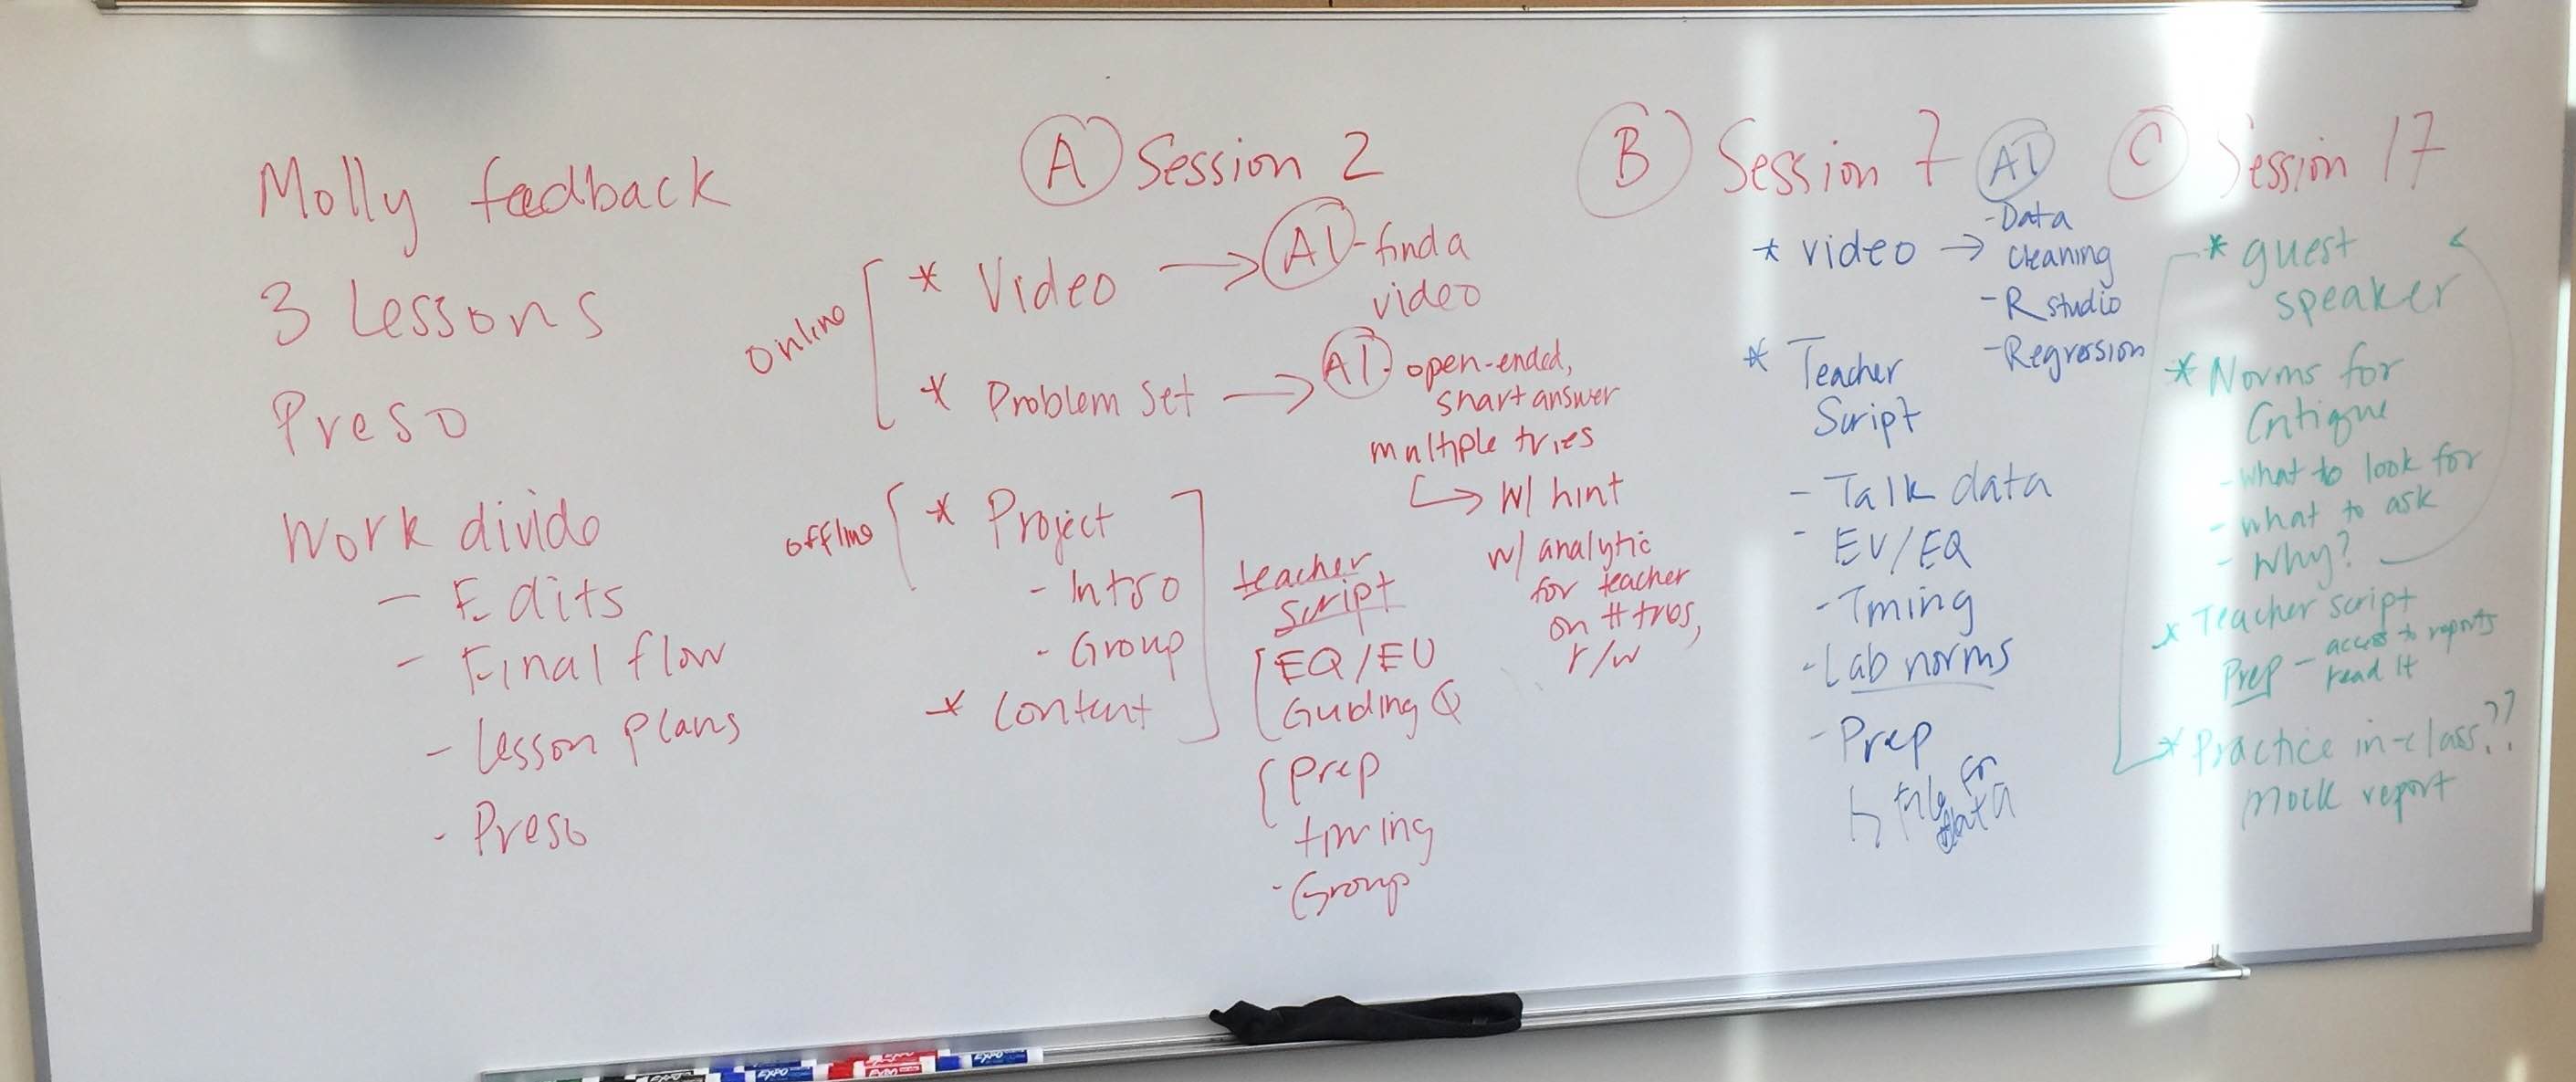 Molly feedback
3 Lessons
Preso
Work divide
- Edits
- Final flow
- Lesson plans
- Preso
A Session 2
Online
* Video → AI - find a
video
* Problem Set → AI. open-ended,
short answer
multiple tries
↳ w/ hint
w/ analytic
for teacher
on # tries,
r/w
offline
* Project
- Intro
- Group
* Content
teacher
script
EQ/EU
Guiding Q
prep
timing
- Group
B Session 7 AI
* video →
- Data
cleaning
- R studio
- Regression
* Teacher
Script
- Talk data
- EU/EQ
- Timing
- Lab norms
- Prep
↳ File for
data
C Session 17
* guest
speaker
* Norms for
Critique
- what to look for
- what to ask
- Why?
* Teacher script
Prep - access to reports
read it
* Practice in-class??
mock report
EXPO
EXPO
EXPO